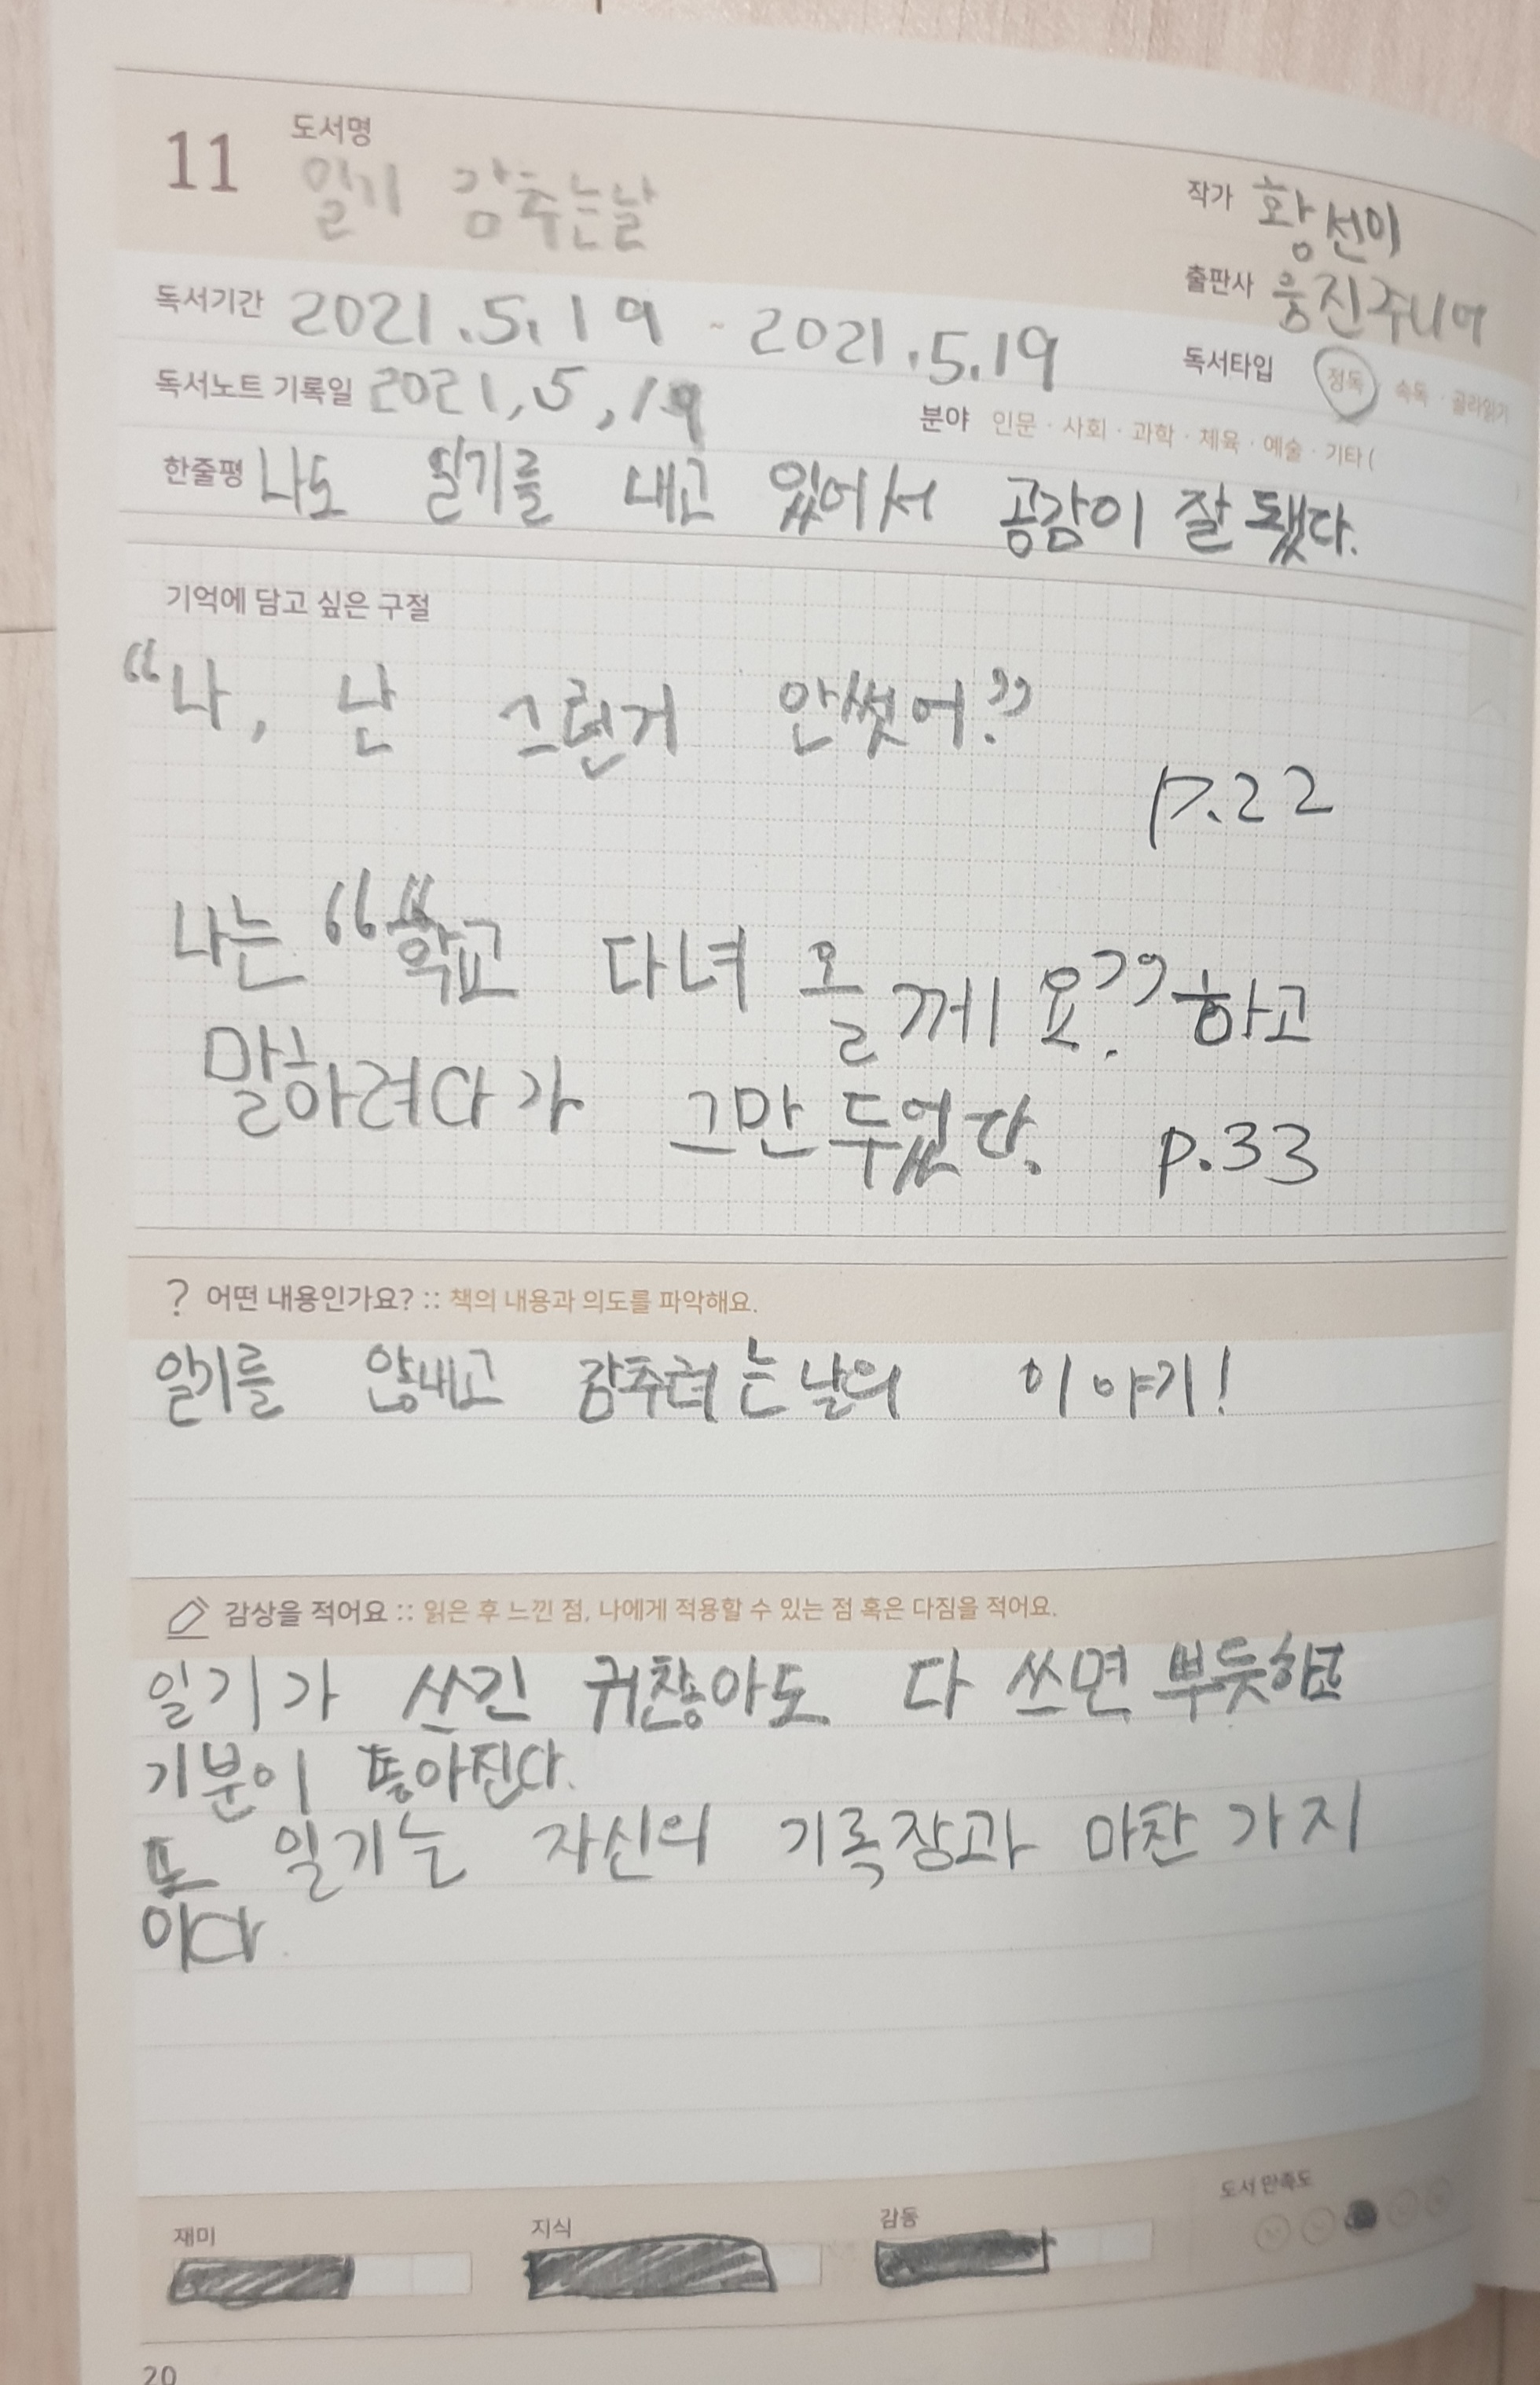 11 도서명
일기 감추는날
작가 황선미
출판사 웅진주니어
독서기간 2021.5.19 - 2021.5.19
독서타입 정독 · 속독 · 골라읽기
독서노트 기록일 2021,5,19
분야 인문 · 사회 · 과학 · 체육 · 예술 · 기타 (
한줄평 나도 일기를 내고 있어서 공감이 잘 됐다.
기억에 담고 싶은 구절
“나, 난 그런거 안썻어.”
p.22
나는 “학교 다녀 올께요.” 하고
말하려다가 그만 두었다. p.33
? 어떤 내용인가요? :: 책의 내용과 의도를 파악해요.
일기를 않내고 감추려는날의 이야기!
감상을 적어요 :: 읽은 후 느낀 점, 나에게 적용할 수 있는 점 혹은 다짐을 적어요.
일기가 쓰긴 귀찮아도 다 쓰면 뿌듯하고
기분이 좋아진다.
또 일기는 자신의 기록장과 마찬가지
이다.
재미 지식 감동 도서 만족도
20